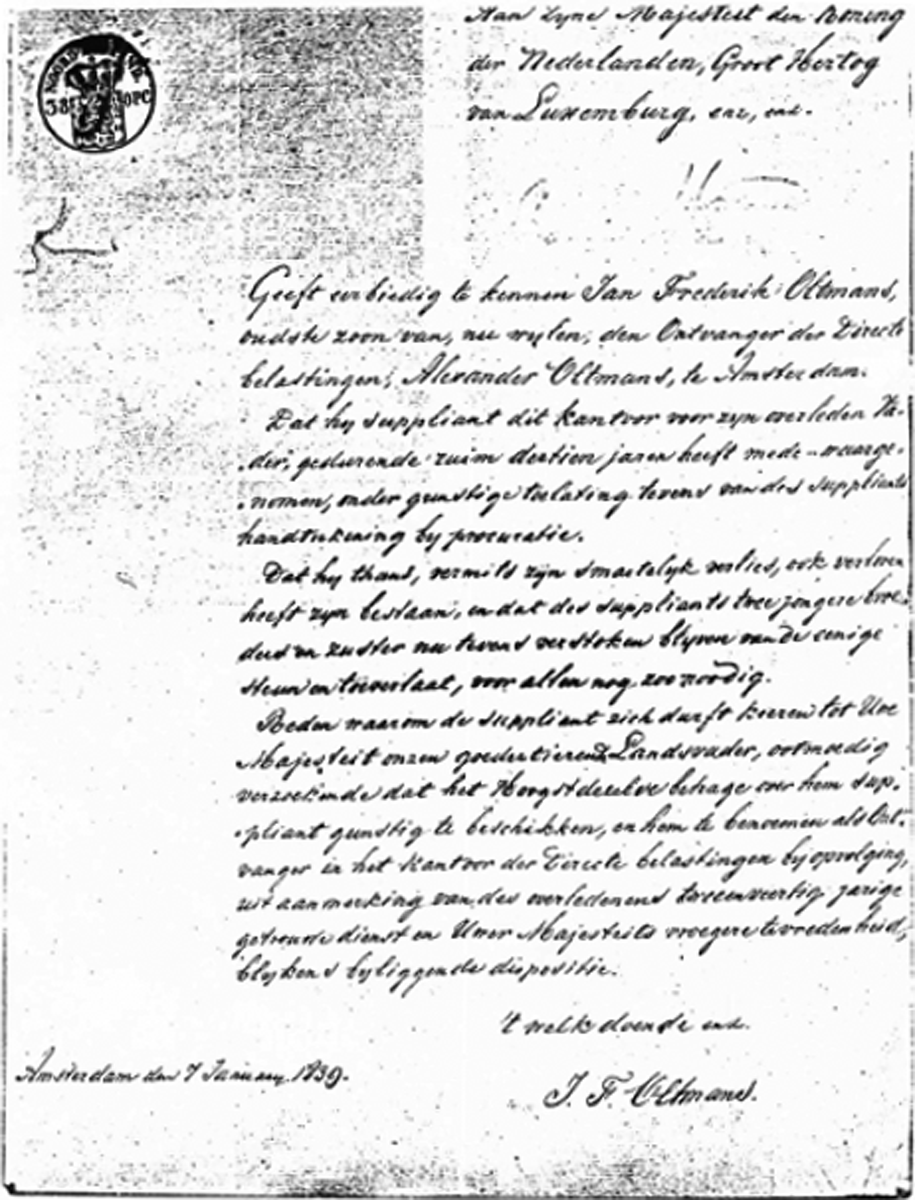 Aan Zyne Majesteit den Koning
der Nederlanden, Groot Hertog
van Luxemburg, enz, enz.
38
OPC
Geeft eerbiedig te kennen Jan Frederik Oltmans,
oudste zoon van, nu wylen, den Ontvanger der Directe
belastingen, Alexander Oltmans, te Amsterdam.
Dat hy suppliant dit kantoor voor zyn overleden Va-
der, gedurende ruim dertien jaren heeft mede-waarge-
nomen, onder gunstige toelating tevens van des suppliants
handtekening by procuratie.
Dat hy thans, vermits zyn smartelyk verlies, ook verloren
heeft zyn bestaan, en dat des suppliants twee jongere broe-
ders en zuster nu tevens verstoken blyven van de eenige
steun en toeverlaat, voor allen nog zoo noodig.
Reden waarom de suppliant zich durft keeren tot Uwe
Majesteit onzen goedertieren Landsvader, ootmoedig
verzoekende dat het Hoogstdezelve behage over hem sup-
pliant gunstig te beschikken, en hem te benoemen als Ont-
vanger in het kantoor der Directe belastingen by opvolging,
uit aanmerking van des overledenens tweeenveertig jarige
getrouwe dienst en Uwer Majesteits vroegere tevredenheid,
blykens byliggende dispositie.
't welk doende enz.
Amsterdam den 7 January 1839.
J. F. Oltmans.